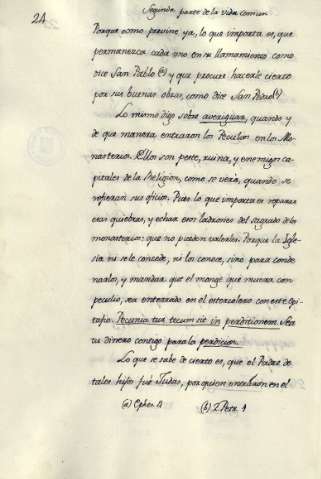 24
Segunda parte de la vida comun
Porque como previne ya, lo que importa es, que
permanezca cada uno en su llamamiento como
dice San Pablo (a) y que procure hacerle cierto
por sus buenas obras, como dice San Pedro (b)
Lo mismo digo sobre averiguar, quando y
de que manera, entraron los Peculios en los Mo-
nasterios. Ellos son peste, ruina, y enemigos ca-
pitales de la Religion, como se verá, quando se
refieran sus oficios. Pues lo que importa es reparar
esas quiebras, y echar esos ladrones del sagrado de los
monasterios: que no pueden valerles. Porque la Igle-
sia ni se le concede, ni los conoce, sino para conde-
narlos, y mandar que el monge que muera con
peculio, sea enterrado en el estercolero con este epi-
tafio. Pecunia tua tecum sit in perditionem. Sea
tu dinero contigo para la perdicion.
Lo que se sabe de cierto es, que el Padre de
tales hijos fué Judas, por quien entraron en el
(a) Ephes. 4 (b) 2. Petr. 1